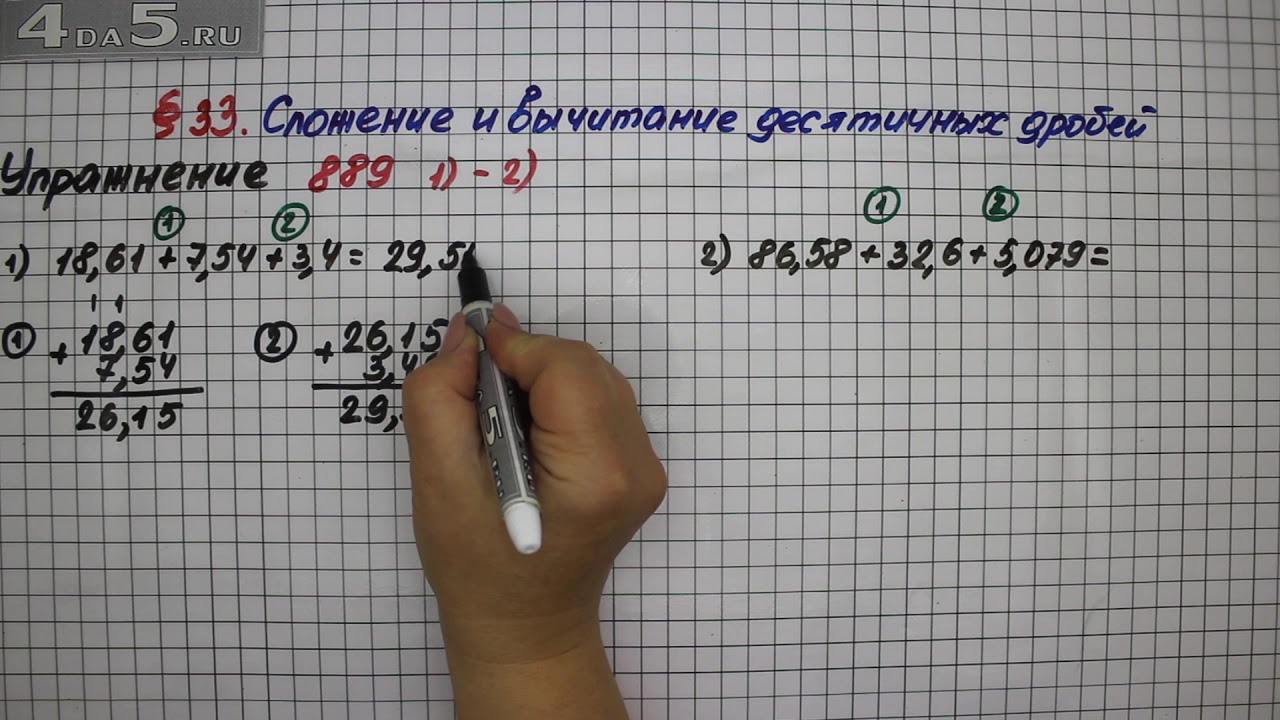 4DA5.RU
§ 33. Сложение и вычитание десятичных дробей
Упражнение 889 1) - 2)
① ②
1) 18,61 + 7,54 + 3,4 = 29,5
① ②
2) 86,58 + 32,6 + 5,079 =
1 1
① + 18,61
7,54
26,15
② + 26,15
3,4
29,
5